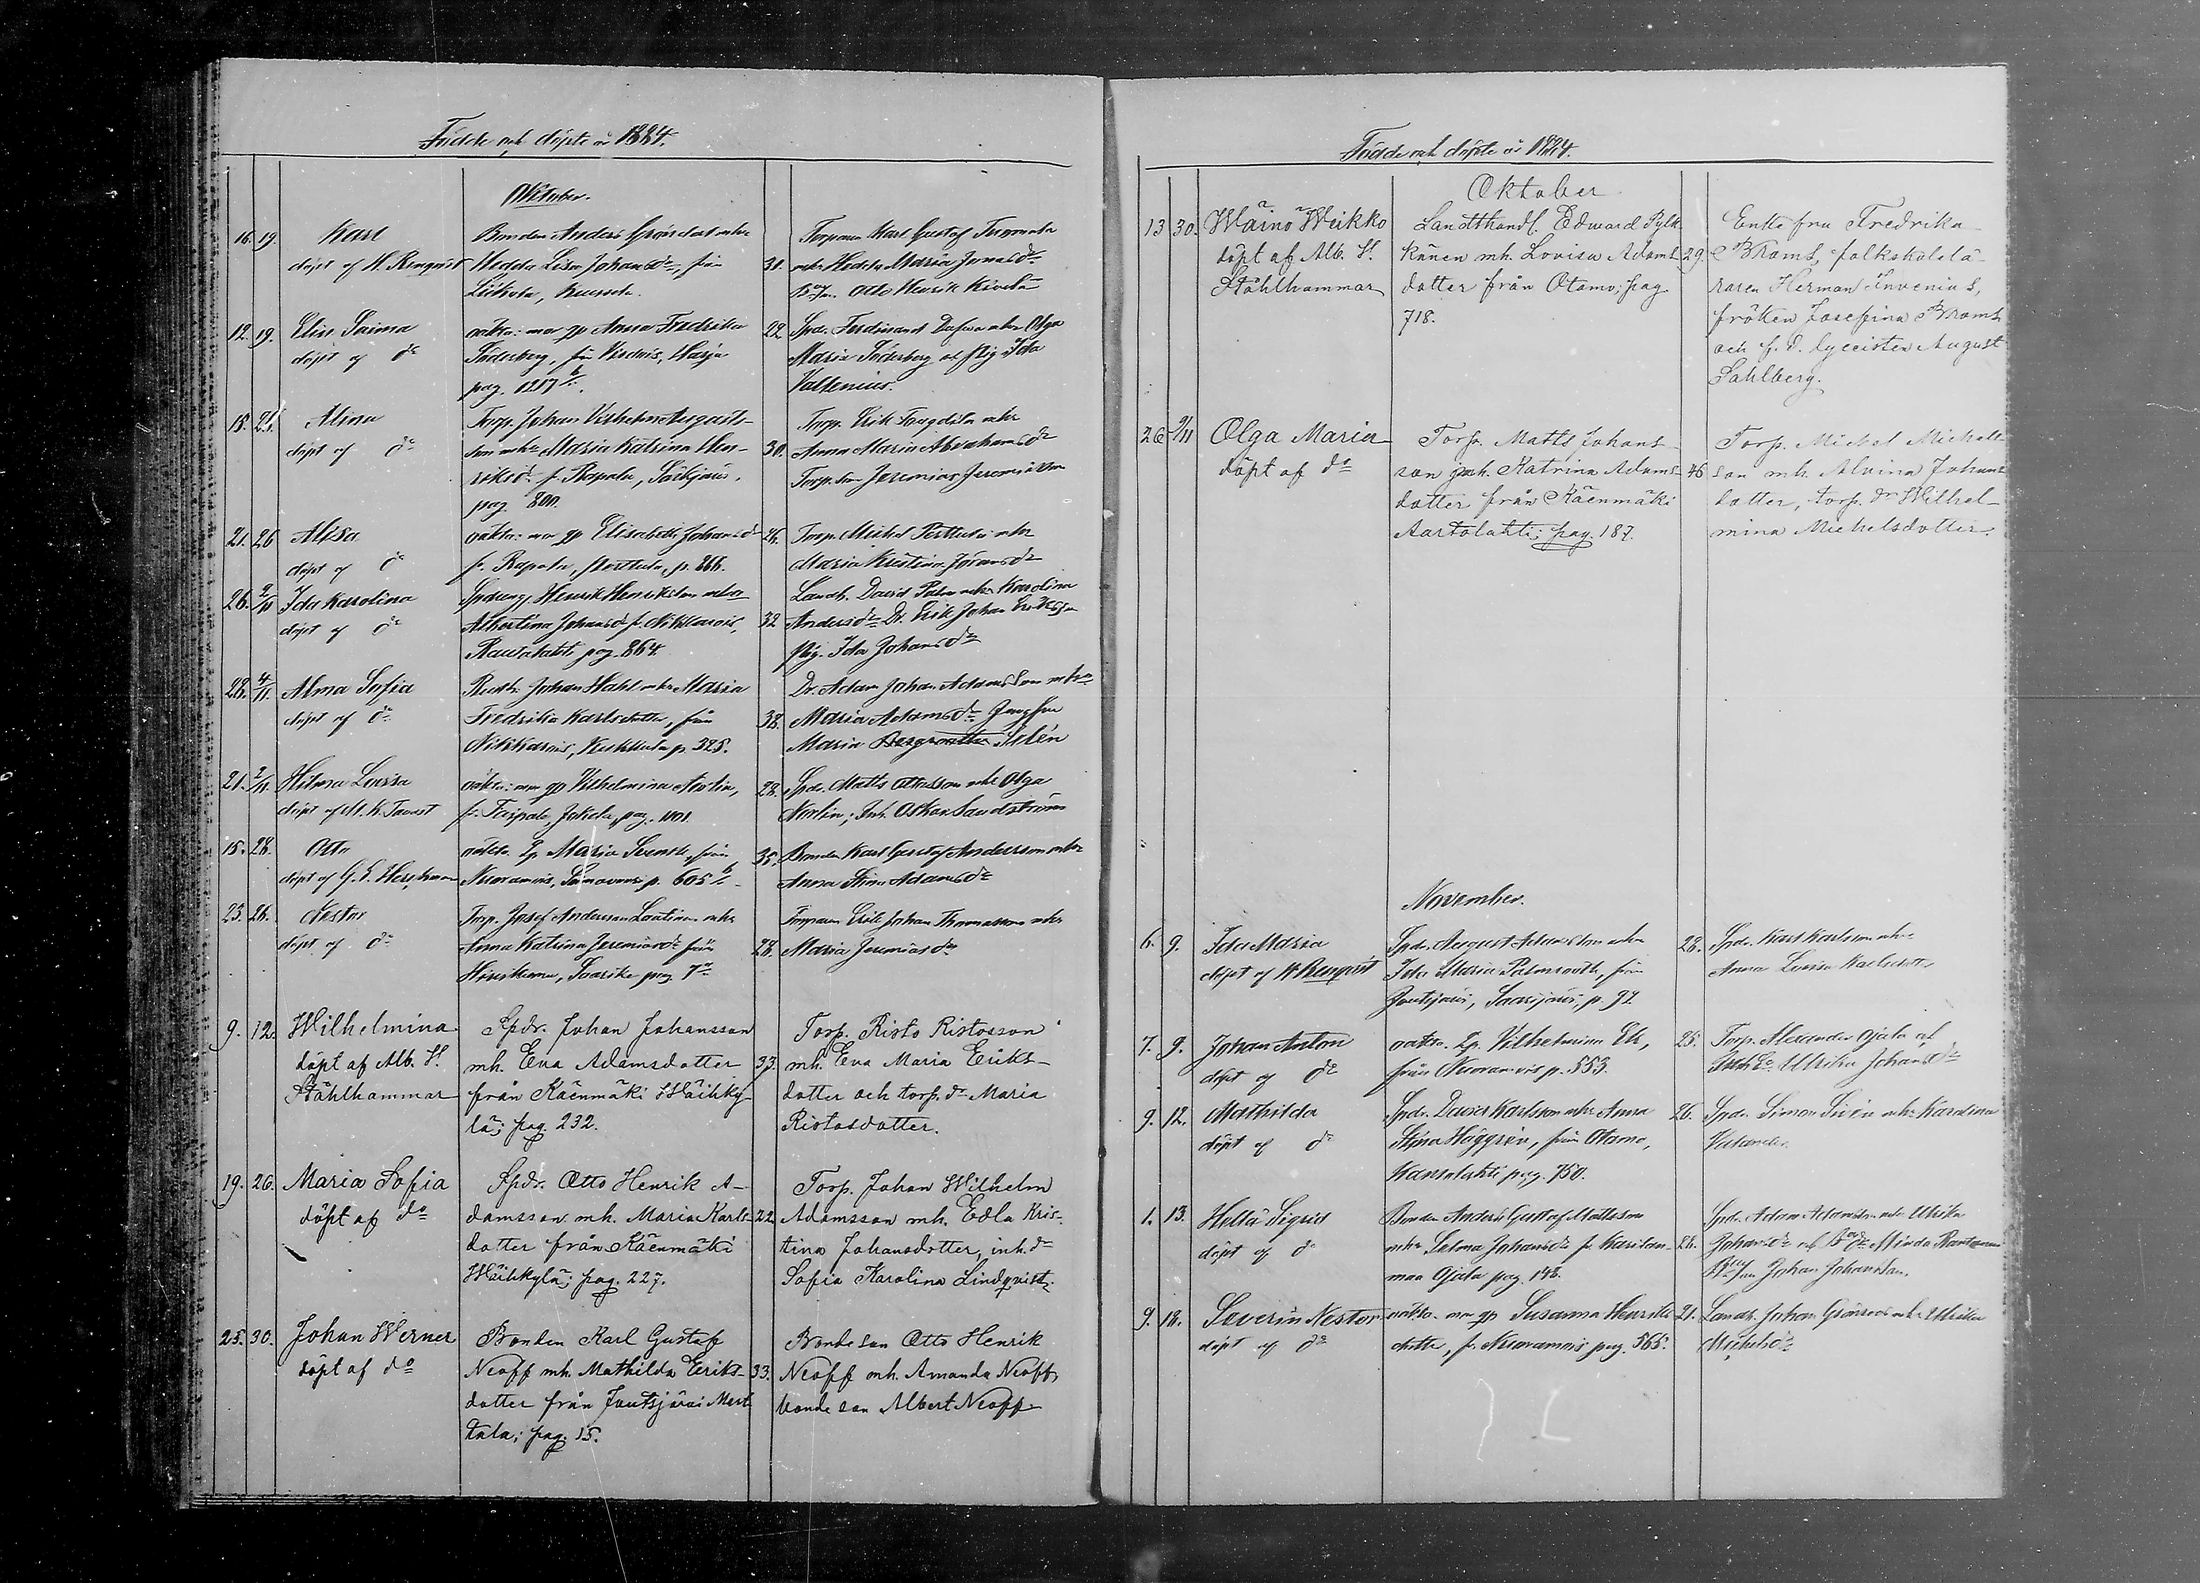 Födde och döpte år 1884.
Oktober.
16. 19. Karl
döpt af H. Renqvist
Bonden Anders Grönroos mhr
Hedda Lisa Johansdr, från
31.
Torparen Karl Gustaf Tuomola
mhr Hedda Maria Jonasdr
Otto Henrik
12. 19. Elin Saima
döpt af do
oäkta: mor qp Anna Fredrika
Söderberg, från
pag. 1217
22
Spdr. Ferdinand mhr Olga
Maria Söderberg och pig. Ida
Valtenius.
18. 21. Alma
döpt af do
Torp. Johan Vilhelm Augusts-
son mhr Maria Katrina Hen-
riksdr f.
pag. 800.
30.
Torp. Erik mhr
Anna Maria Abrahamsdr
Torp. son Jeremias Jeremiasson
21. 26 Alisa
döpt af do
oäkta: mor qp Elisabeth Johansdr
p. 866.
26.
Torp. Michel Perttula mhr
Maria Kristina Göransdr
26. 2/11 Ida Karolina
döpt af do
Spdreng. Henrik Henriksson mhr
Albertina Johansdr f.
pag. 864.
32
Landb. David mhr Karolina
Andersdr Dr. Erik Johan Eriksson
pig. Ida Johansdr
28. 4/11. Alma Sofia
döpt af do
Johan Stahl mhr Maria
Fredrika Karlsdotter, från
p. 325.
38.
Dr. Adam Johan Adamsson mhr
Maria Adamsdr Jungfru
Maria
21. 2/11. Hilma Lovisa
döpt af M. K. Tavast
oäkta: mor qp Vilhelmina
f. Jokela, pag. 1101.
28.
Spdr. Matts Ottosson mhr Olga
Norlin; Inh. Oskar Sandström
15. 28. Otto
döpt af G. E. Hesselman
oäkta. qp Maria Svensk, från
p. 605
35.
Bonden Karl Gustaf Andersson mhr
Anna Stina Adamsdr
23. 26. Nestor
döpt af do
Torp. Josef Andersson mhr
Anna Katrina Jeremiasdr från
pag. 7
28.
Torparen Erik Johan Thomasson mhr
Maria Jeremiasdr
9. 12. Wilhelmina
döpt af Alb. Sl.
Stählhammar
Spdr. Johan Johansson
mh. Eva Adamsdotter
från Käenmäki Wäihky-
lä; pag. 232.
33.
Torp. Risto Ristosson
mh. Eva Maria Eriks-
dotter och torp. dr Maria
Ristosdotter.
19. 26. Maria Sofia
döpt af do
Spdr. Otto Henrik A-
damsson mh. Maria Karls-
dotter från Käenmäki
Wäihkylä; pag. 227.
22
Torp. Johan Wilhelm
Adamsson mh. Edla Kris-
tina Johansdotter, inh. dr
Sofia Karolina Lindqvist.
25. 30. Johan Werner
döpt af do
Bonden Karl Gustaf
Neoff mh. Mathilda Eriks-
dotter från Juutsjärvi Mert-
tala; pag. 15.
33.
Bondeson Otto Henrik
Neoff mh. Amanda Neoff,
bondeson Albert Neoff
Födde och döpte år 1884.
Oktober
13 30. Wäinö Weikko
döpt af Alb. Sl.
Stählhammar
Landthandl. Edward Pylk-
känen mh. Lovisa Adams-
dotter från Otamo; pag.
718.
29.
Enke fru Fredrika
Brams, folkskolelä-
raren Herman Invenius,
fröken Josefina Brams
och f. d. lyceisten August
Sahlberg.
26 2/11 Olga Maria
döpt af do
Torp. Matts Johans-
son mh. Katrina Adams-
dotter från Käenmäki
Aartolahti; pag. 187.
45
Torp. Michel Michels-
son mh. Alvina Johans-
dotter, torp. dr Wilhel-
mina Michelsdotter.
November.
6. 9. Ida Maria
döpt af H Renqvist
Spdr. August Adamsson mhr
Ida Maria Palmroth, från
Juutsjärvi, Saarijärvi, p. 92
28.
Spdr. Karl Karlsson mhr
Anna Lovisa Karlsdotter
7. 9. Johan Anton
döpt af do
oäkta. qp. Vilhelmina Ek,
från p. 553.
25.
Torp. Alexander Ojala och
Ulrika Johansdr
9. 12. Mathilda
döpt af do
Spdr. David Karlsson mhr Anna
Stina Häggren, från Otamo,
pag. 750.
26.
Spdr. Simon mhr Karolina
1. 13. Hellä Sigrid
döpt af do
Bonden Anders Gustaf Mattsson
mhr Selma Johansdr fr. Karilan-
maa Ojala pag. 148.
26.
Spdr. Adam Adamsson mhr Ulrika
Johansdr och Minda
Johan Johansson.
9. 18. Severin Nestor
döpt af do
oäkta. mor qp Susanna Henriks-
dotter, fr. pag. 565.
21.
Landb. Johan Grönroos mhr Ulrika
Michelsdr